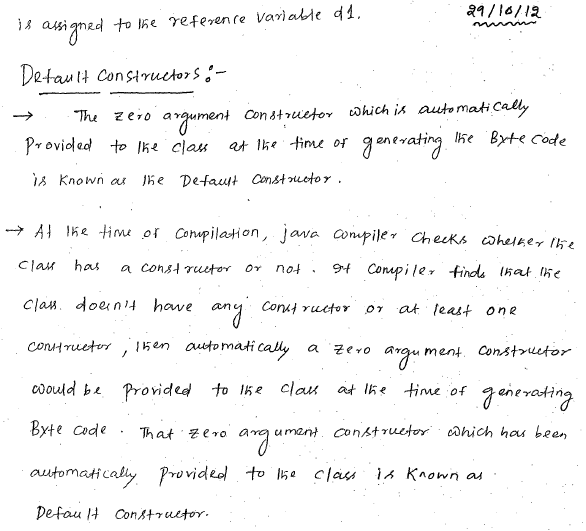 is assigned to the reference variable d1.
29/10/12
Default Constructors :-
→ The zero argument constructor which is automatically
Provided to the class at the time of generating the Byte code
is Known as the Default Constructor.
→ At the time of compilation, java compiler checks whether the
class has a constructor or not. If compiler finds that the
class doesn't have any constructor or at least one
constructor, then automatically a zero argument constructor
would be provided to the class at the time of generating
Byte code. That zero argument constructor which has been
automatically provided to the class is Known as
Default Constructor.